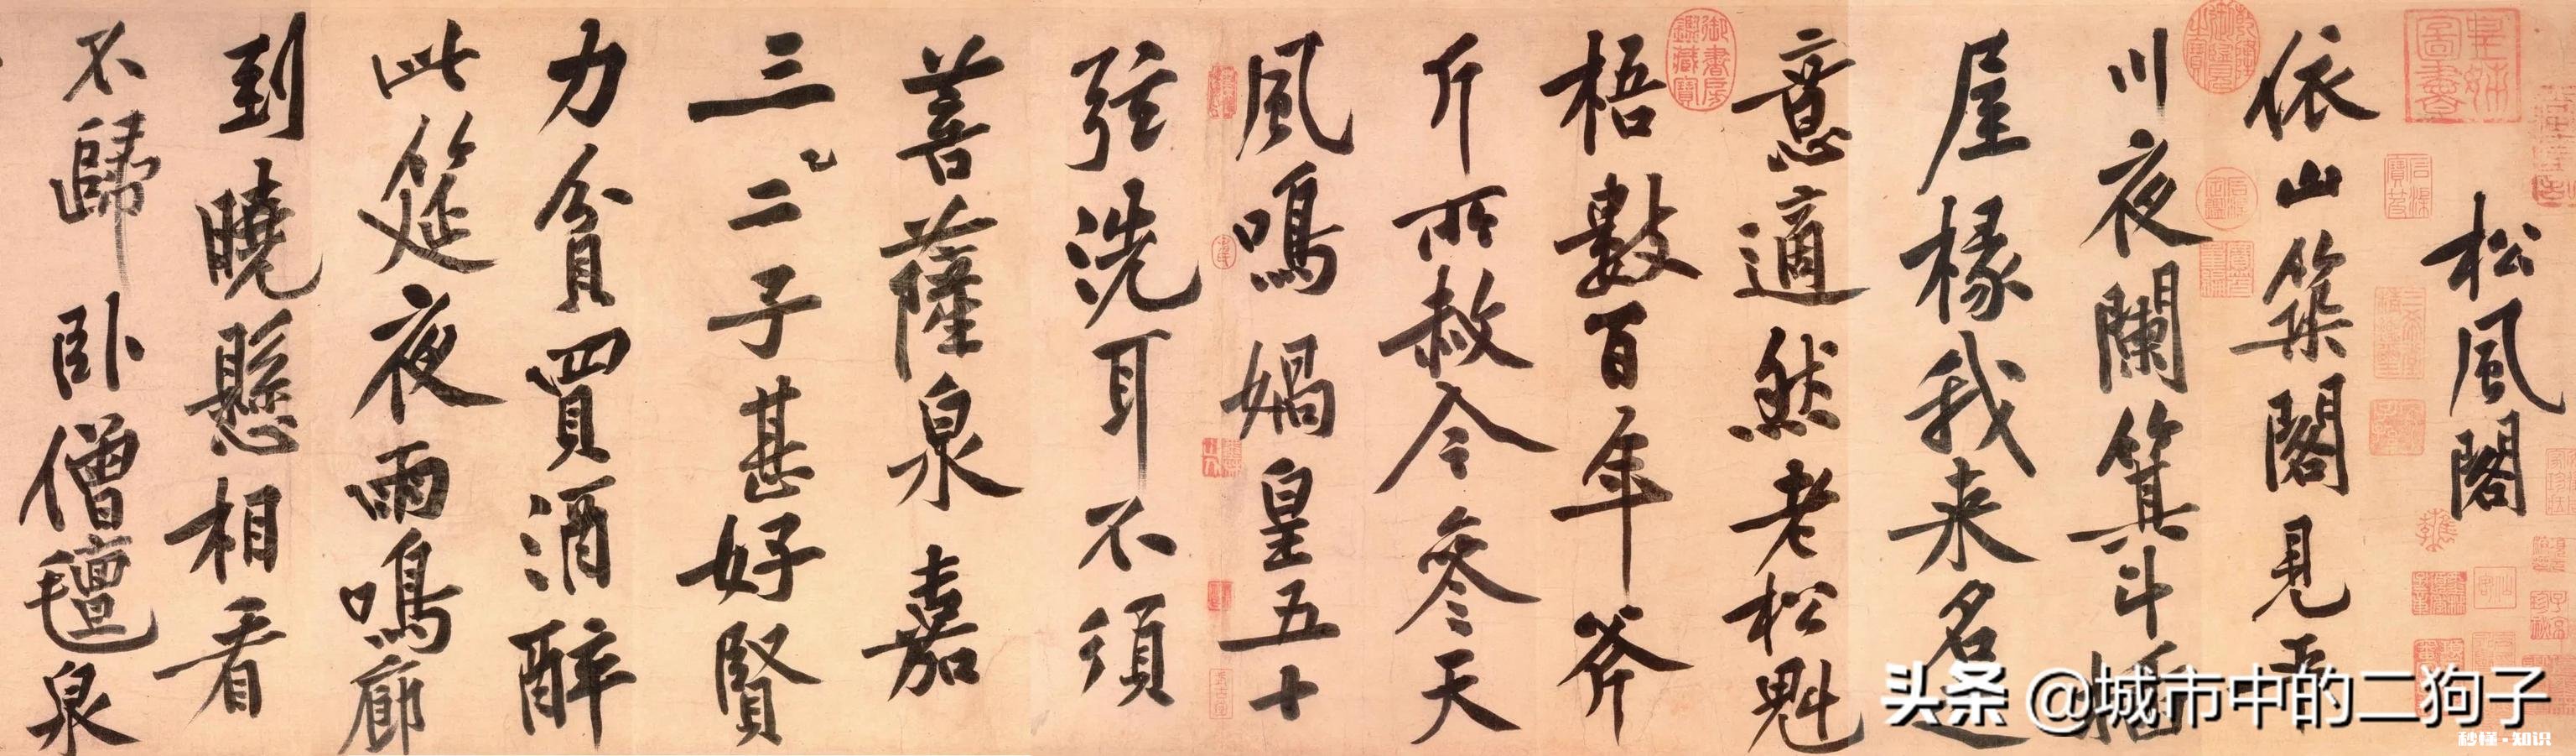 松風閣
依山築閣見平
川夜闌箕斗插
屋椽我来名之
意適然老松魁
梧數百年斧
斤所赦今參天
風鳴媧皇五十
弦洗耳不須
菩薩泉嘉
三二子甚好賢
力貧買酒醉
此筵夜雨鳴廊
到曉懸相看
不歸卧僧氈泉
皇姊圖書
乾隆御覽之寶
御書房鑑藏寶
头条 @城市中的二狗子
秒懂·知识